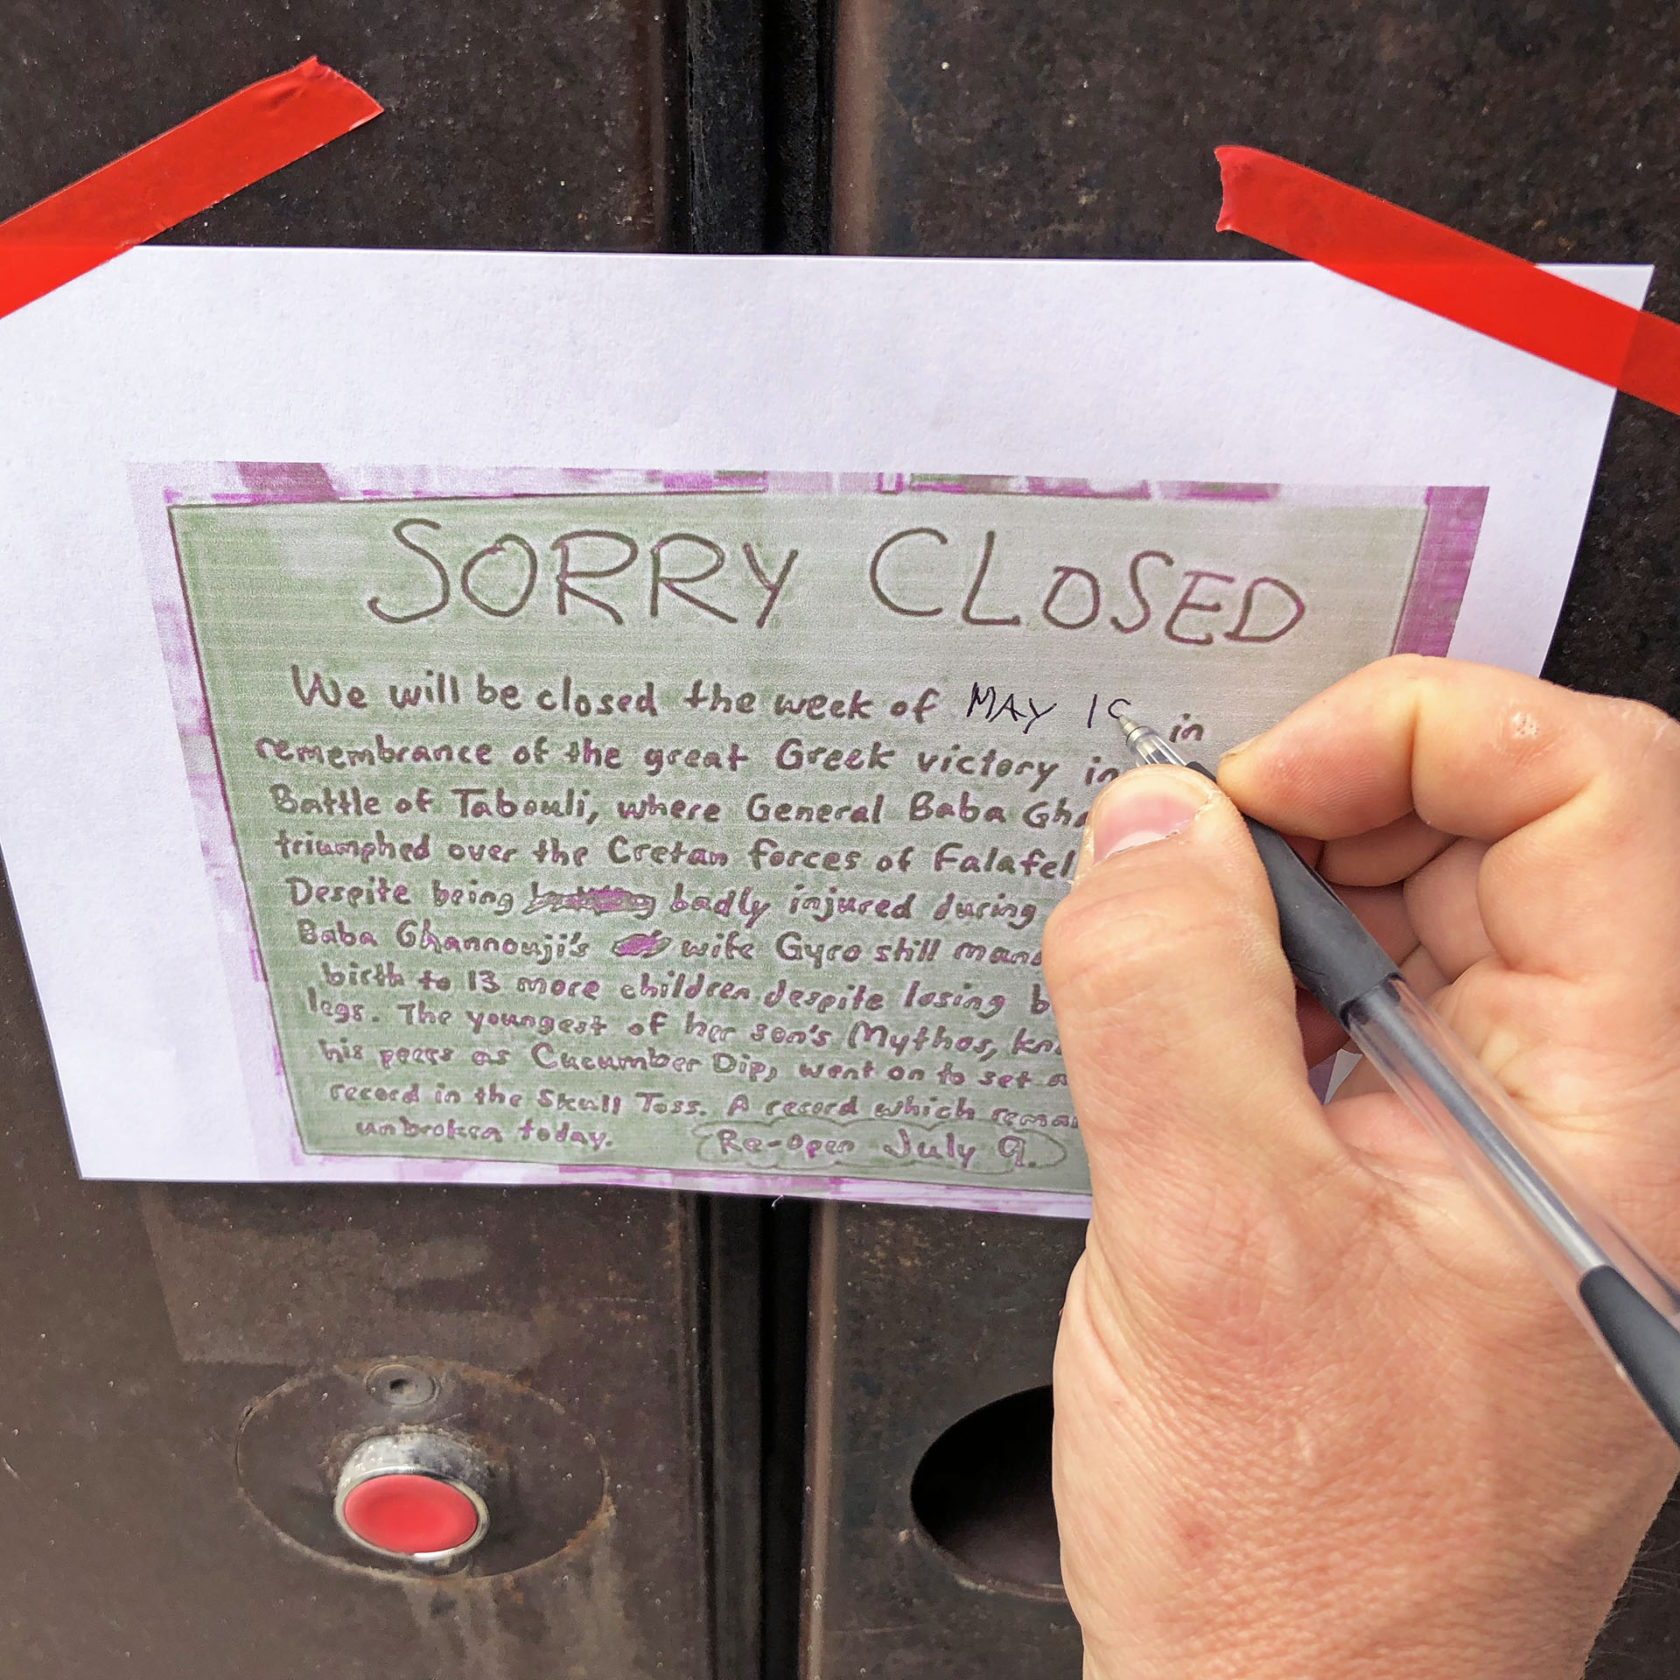 SORRY CLOSED
We will be closed the week of MAY 1 in
remembrance of the great Greek victory in
Battle of Tabouli, where General Baba Gha
triumphed over the Cretan forces of Falafel
Despite being badly injured during
Baba Ghannouji's wife Gyro still mana
birth to 13 more children despite losing b
legs. The youngest of her son's Mythos, kno
his peers as Cucumber Dip, went on to set a
record in the Skull Toss. A record which remai
unbroken today. Re-open July 9.